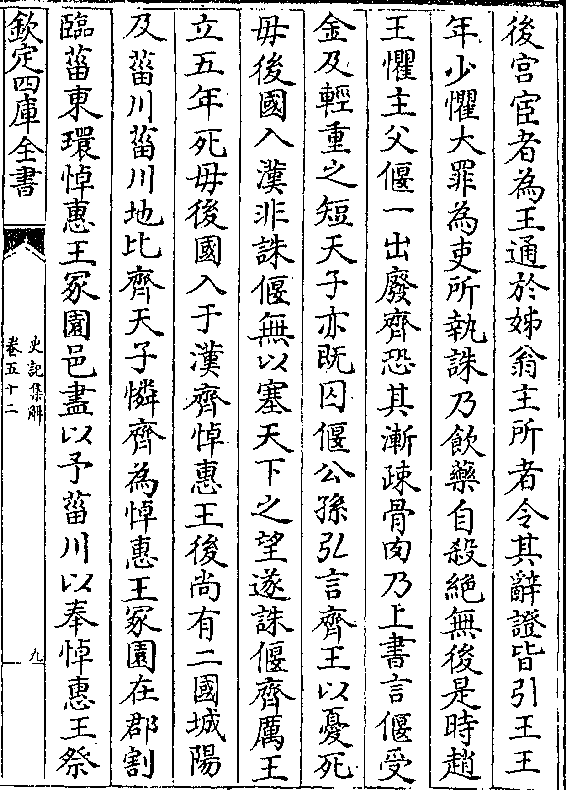 後宫宦者為王通於姊翁主所者令其辭證皆引王王
年少懼大罪為吏所執誅乃飲藥自殺絶無後是時趙
王懼主父偃一出廢齊恐其漸疎骨肉乃上書言偃受
金及輕重之短天子亦既囚偃公孫弘言齊王以憂死
毋後國入漢非誅偃無以塞天下之望遂誅偃齊厲王
立五年死毋後國入于漢齊悼惠王後尚有二國城陽
及菑川菑川地比齊天子憐齊為悼惠王冢園在郡割
臨菑東環悼惠王冢園邑盡以予菑川以奉悼惠王祭
欽定四庫全書
史記集解
卷五十二
九